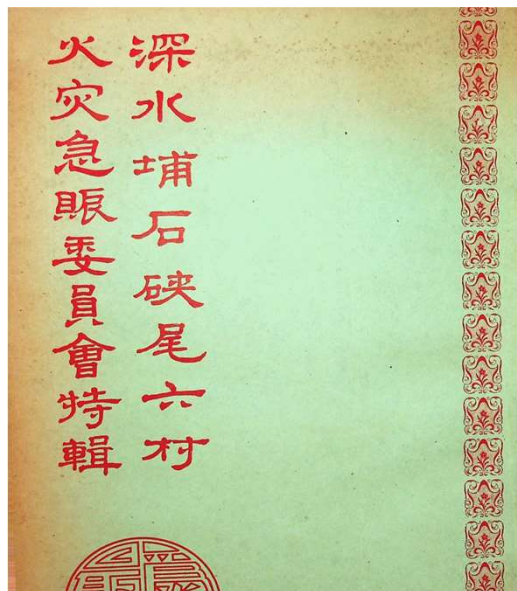 深水埔石硤尾六村
火灾急賑委員會特輯